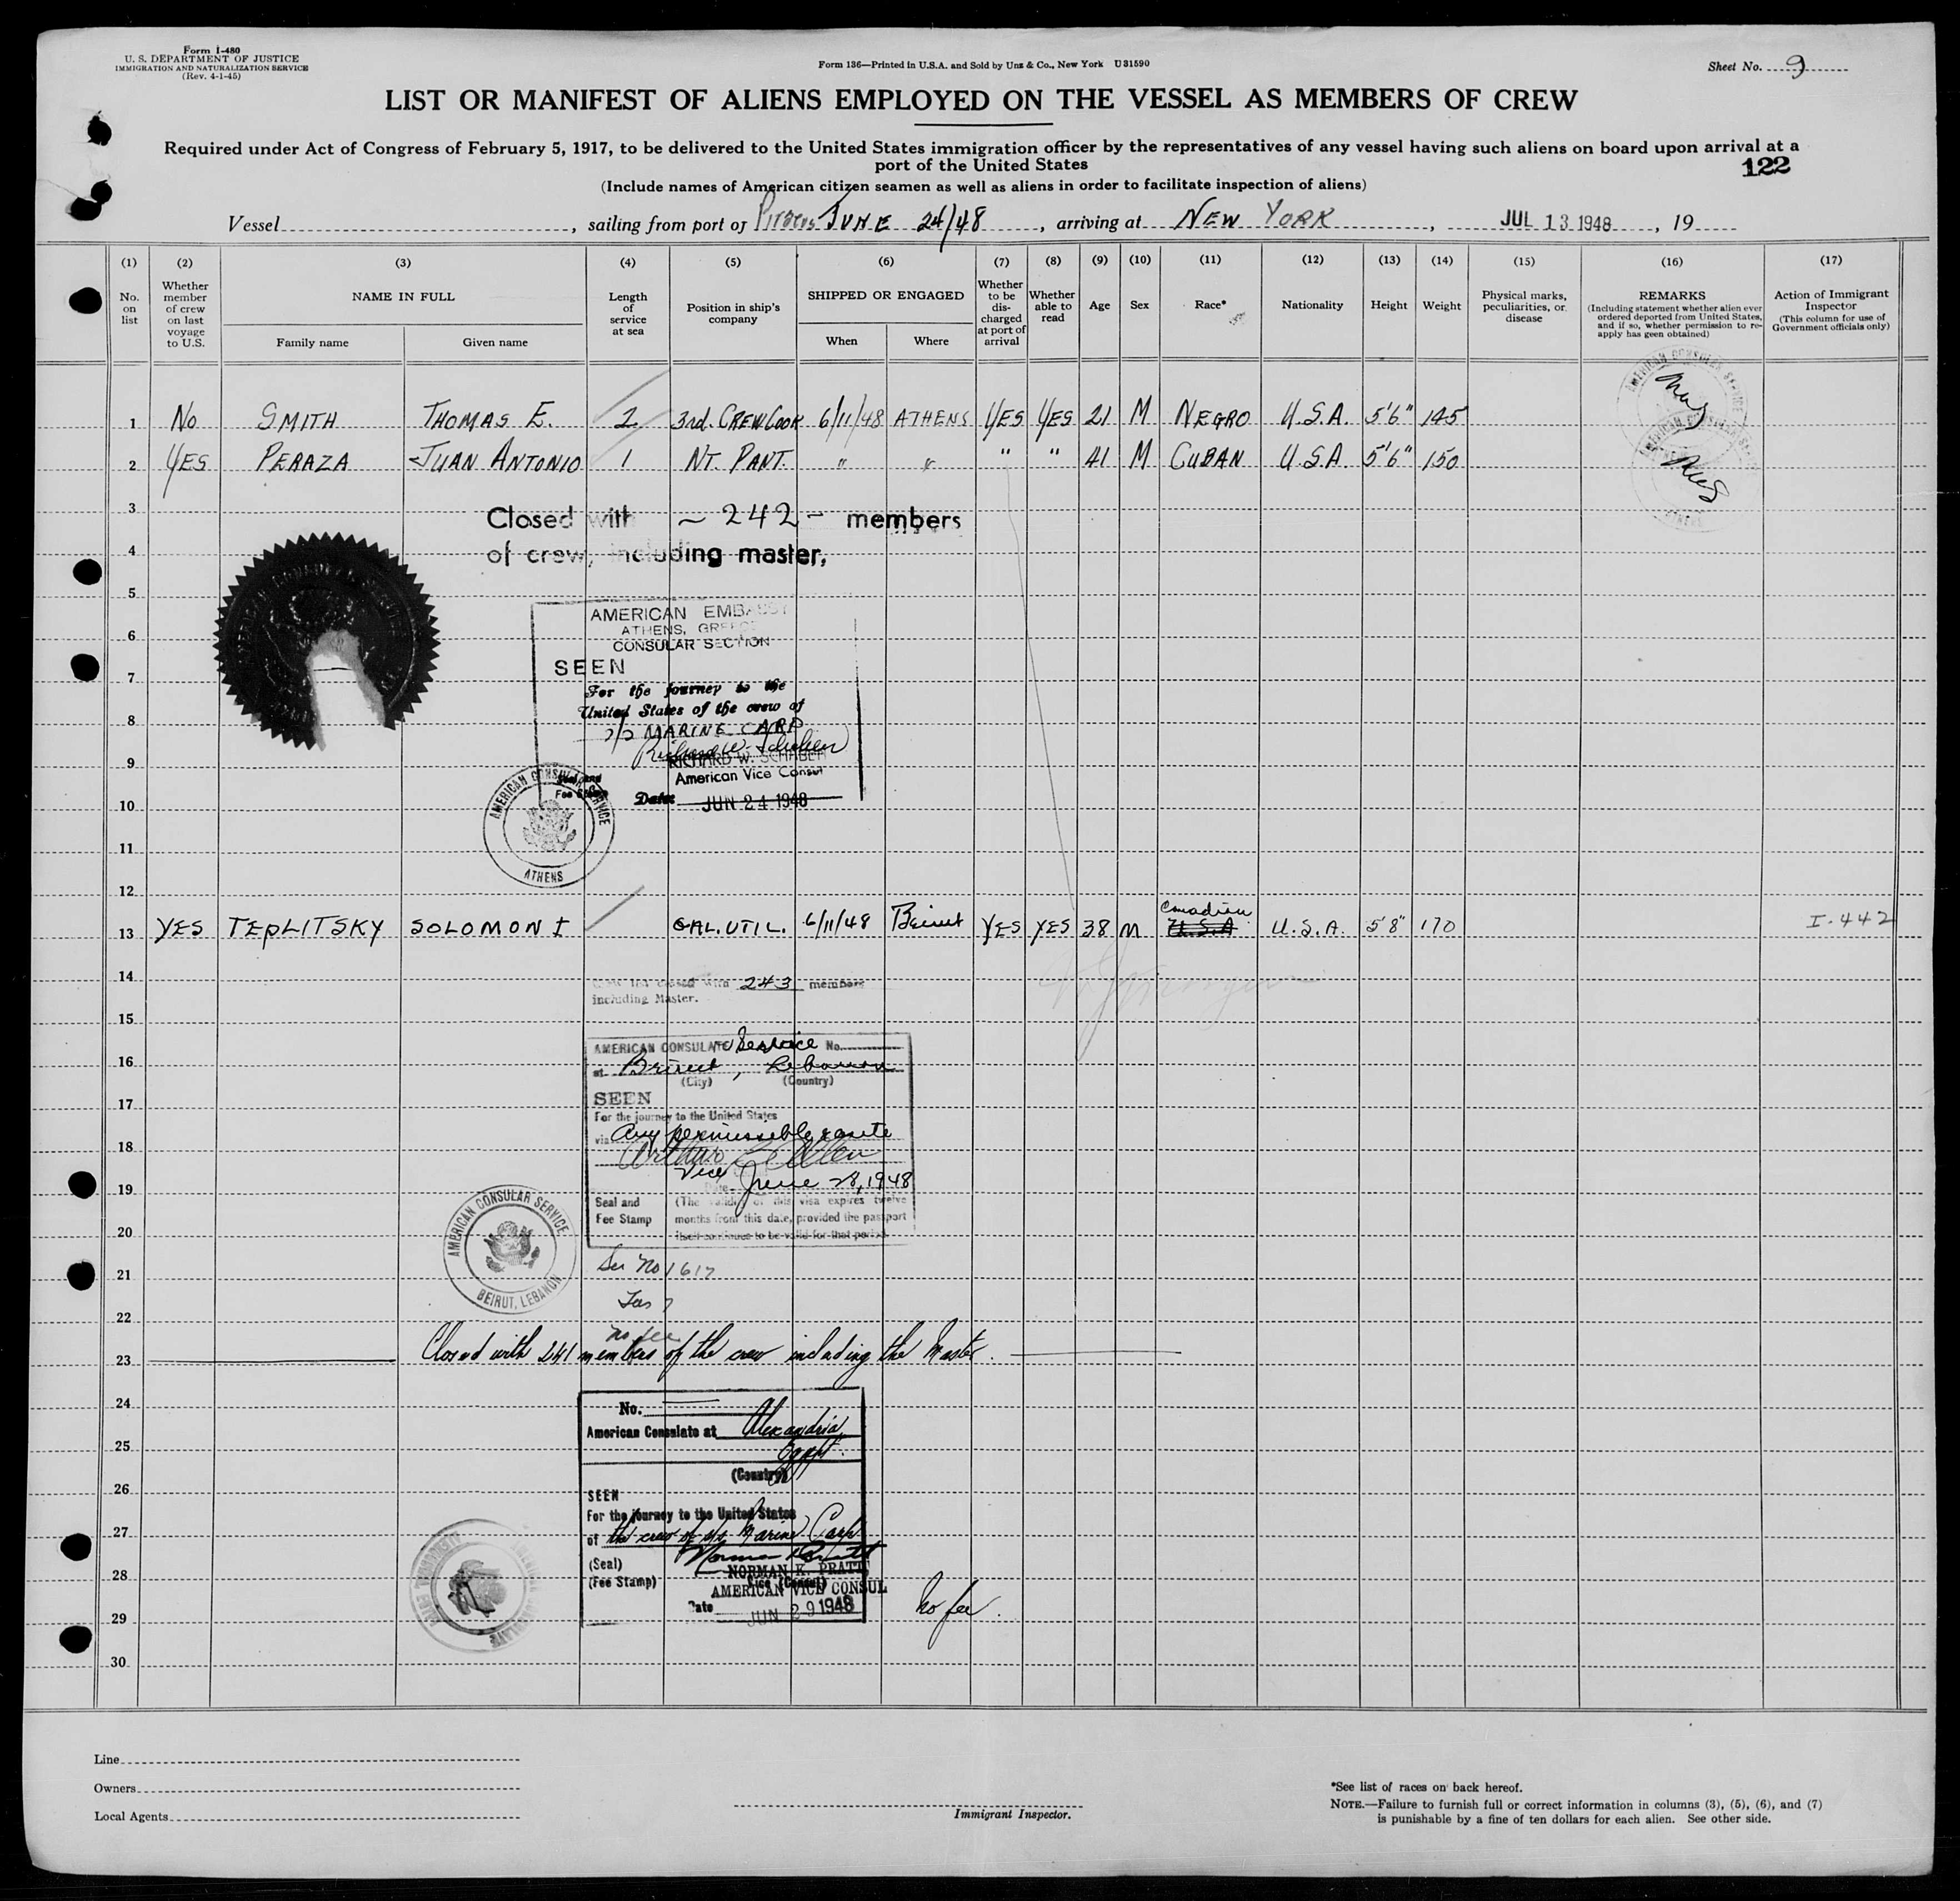 Form I-480
U. S. DEPARTMENT OF JUSTICE
IMMIGRATION AND NATURALIZATION SERVICE
(Rev. 4-1-45)
Form 136—Printed in U.S.A. and Sold by Unz & Co., New York U31590
Sheet No. 9
LIST OR MANIFEST OF ALIENS EMPLOYED ON THE VESSEL AS MEMBERS OF CREW
Required under Act of Congress of February 5, 1917, to be delivered to the United States immigration officer by the representatives of any vessel having such aliens on board upon arrival at a
port of the United States
122
(Include names of American citizen seamen as well as aliens in order to facilitate inspection of aliens)
Vessel , sailing from port of Piraeus JUNE 24/48 , arriving at NEW YORK , JUL 13 1948 , 19
(1) (2) (3) (4) (5) (6) (7) (8) (9) (10) (11) (12) (13) (14) (15) (16) (17)
No. on list
Whether member of crew on last voyage to U.S.
NAME IN FULL
Family name
Given name
Length of service at sea
Position in ship's company
SHIPPED OR ENGAGED
When
Where
Whether to be discharged at port of arrival
Whether able to read
Age
Sex
Race*
Nationality
Height
Weight
Physical marks, peculiarities, or disease
REMARKS
(Including statement whether alien ever ordered deported from United States, and if so, whether permission to re-apply has geen obtained)
Action of Immigrant Inspector
(This column for use of Government officials only)
1 NO SMITH THOMAS E. 2 3rd. CREW COOK 6/11/48 ATHENS YES YES 21 M NEGRO U.S.A. 5'6" 145
2 YES PERAZA JUAN ANTONIO 1 NT. PANT. " " " " 41 M CUBAN U.S.A. 5'6" 150
AMERICAN CONSULAR SERVICE
ATHENS
3
Closed with - 242 - members
4
of crew, including master,
5
AMERICAN EMBASSY
ATHENS, GREECE
6
CONSULAR SECTION
SEEN
7
For the journey to the
United States of the crew of
8
S/S MARINE CARP
RICHARD W. SCHABEN
9
American Vice Consul
Seal and
Fee Stamp
10
Date JUN 24 1948
AMERICAN CONSULAR SERVICE
ATHENS
11
12
13 YES TEPLITSKY SOLOMON I GAL. UTIL. 6/11/48 Beirut YES YES 38 M U.S.A Canadian U.S.A. 5'8" 170 I-442
14
Crew list closed with 243 members
including Master.
15
AMERICAN CONSULATE Service No.
16
at Beirut, Lebanon
(City) (Country)
17
SEEN
For the journey to the United States
18
via Any permissible route
Arthur B Allen
Vice
19
Date June 28, 1948
Seal and
Fee Stamp
(The validity of this visa expires twelve
months from this date, provided the passport
20
itself continues to be valid for that period.
AMERICAN CONSULAR SERVICE
BEIRUT, LEBANON
21
Ser No 1617
22
no fee
23
Closed with 241 members of the crew including the Master.
24
No.
American Consulate at Alexandria
25
Egypt.
(Country)
26
SEEN
For the journey to the United States
27
of the crew of s/s Marine Carp
(Seal)
NORMAN K. PRATT
28
(Fee Stamp)
Vice (Consul)
AMERICAN VICE CONSUL
29
Date JUN 29 1948
No fee.
30
Line
Owners
Local Agents
Immigrant Inspector.
*See list of races on back hereof.
NOTE.—Failure to furnish full or correct information in columns (3), (5), (6), and (7)
is punishable by a fine of ten dollars for each alien. See other side.